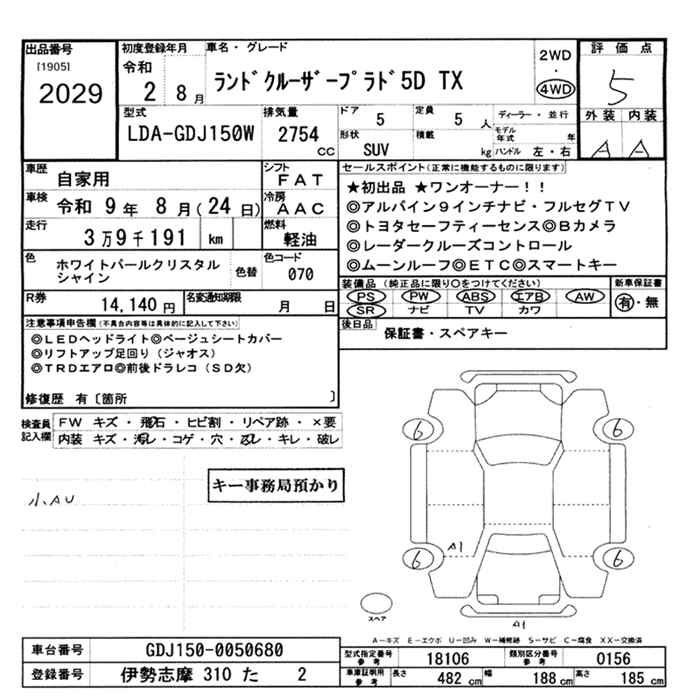 出品番号
[1905]
2029
初度登録年月
令和
2 8月
車名・グレード
ランドクルーザープラド5D TX
2WD
・
4WD
評価点
5
外装 内装
A A
型式
LDA-GDJ150W
排気量
2754
cc
ドア
5
定員
5 人
形状
SUV
積載
kg
ディーラー・並行
モデル年式 年
ハンドル 左・右
車歴
自家用
シフト
FAT
車検
令和 9年 8月(24日)
冷房
AAC
走行
3万9千191 km
燃料
軽油
色
ホワイトパールクリスタル
シャイン
色替
色コード
070
R券
14,140円
名変通知期限
月 日
セールスポイント(正常に機能するものに限ります)
★初出品 ★ワンオーナー!!
◎アルパイン9インチナビ・フルセグTV
◎トヨタセーフティーセンス◎Bカメラ
◎レーダークルーズコントロール
◎ムーンルーフ◎ETC◎スマートキー
装備品(純正品に限り○をつけてください)
PS PW ABS エアB AW
SR ナビ TV カワ
新車保証書
有・無
後日品
保証書・スペアキー
注意事項申告欄(不具合内容等は具体的に記入して下さい)
◎LEDヘッドライト◎ベージュシートカバー
◎リフトアップ足回り(ジャオス)
◎TRDエアロ◎前後ドラレコ(SD欠)
修復歴 有〔箇所 〕
検査員
記入欄
FW キズ・飛石・ヒビ割・リペア跡・×要
内装 キズ・汚レ・コゲ・穴・凹レ・キレ・破レ
キー事務局預かり
小AU
6 6
6 6
A1
スペア
A1
A-キズ E-エクボ U-凹み W-補修跡 S-サビ C-腐食 XX-交換済
車台番号
GDJ150-0050680
登録番号
伊勢志摩 310 た 2
型式指定番号
参考
18106
類別区分番号
参考
0156
車庫証明用
参考
長さ 482 cm 幅 188 cm 高さ 185 cm